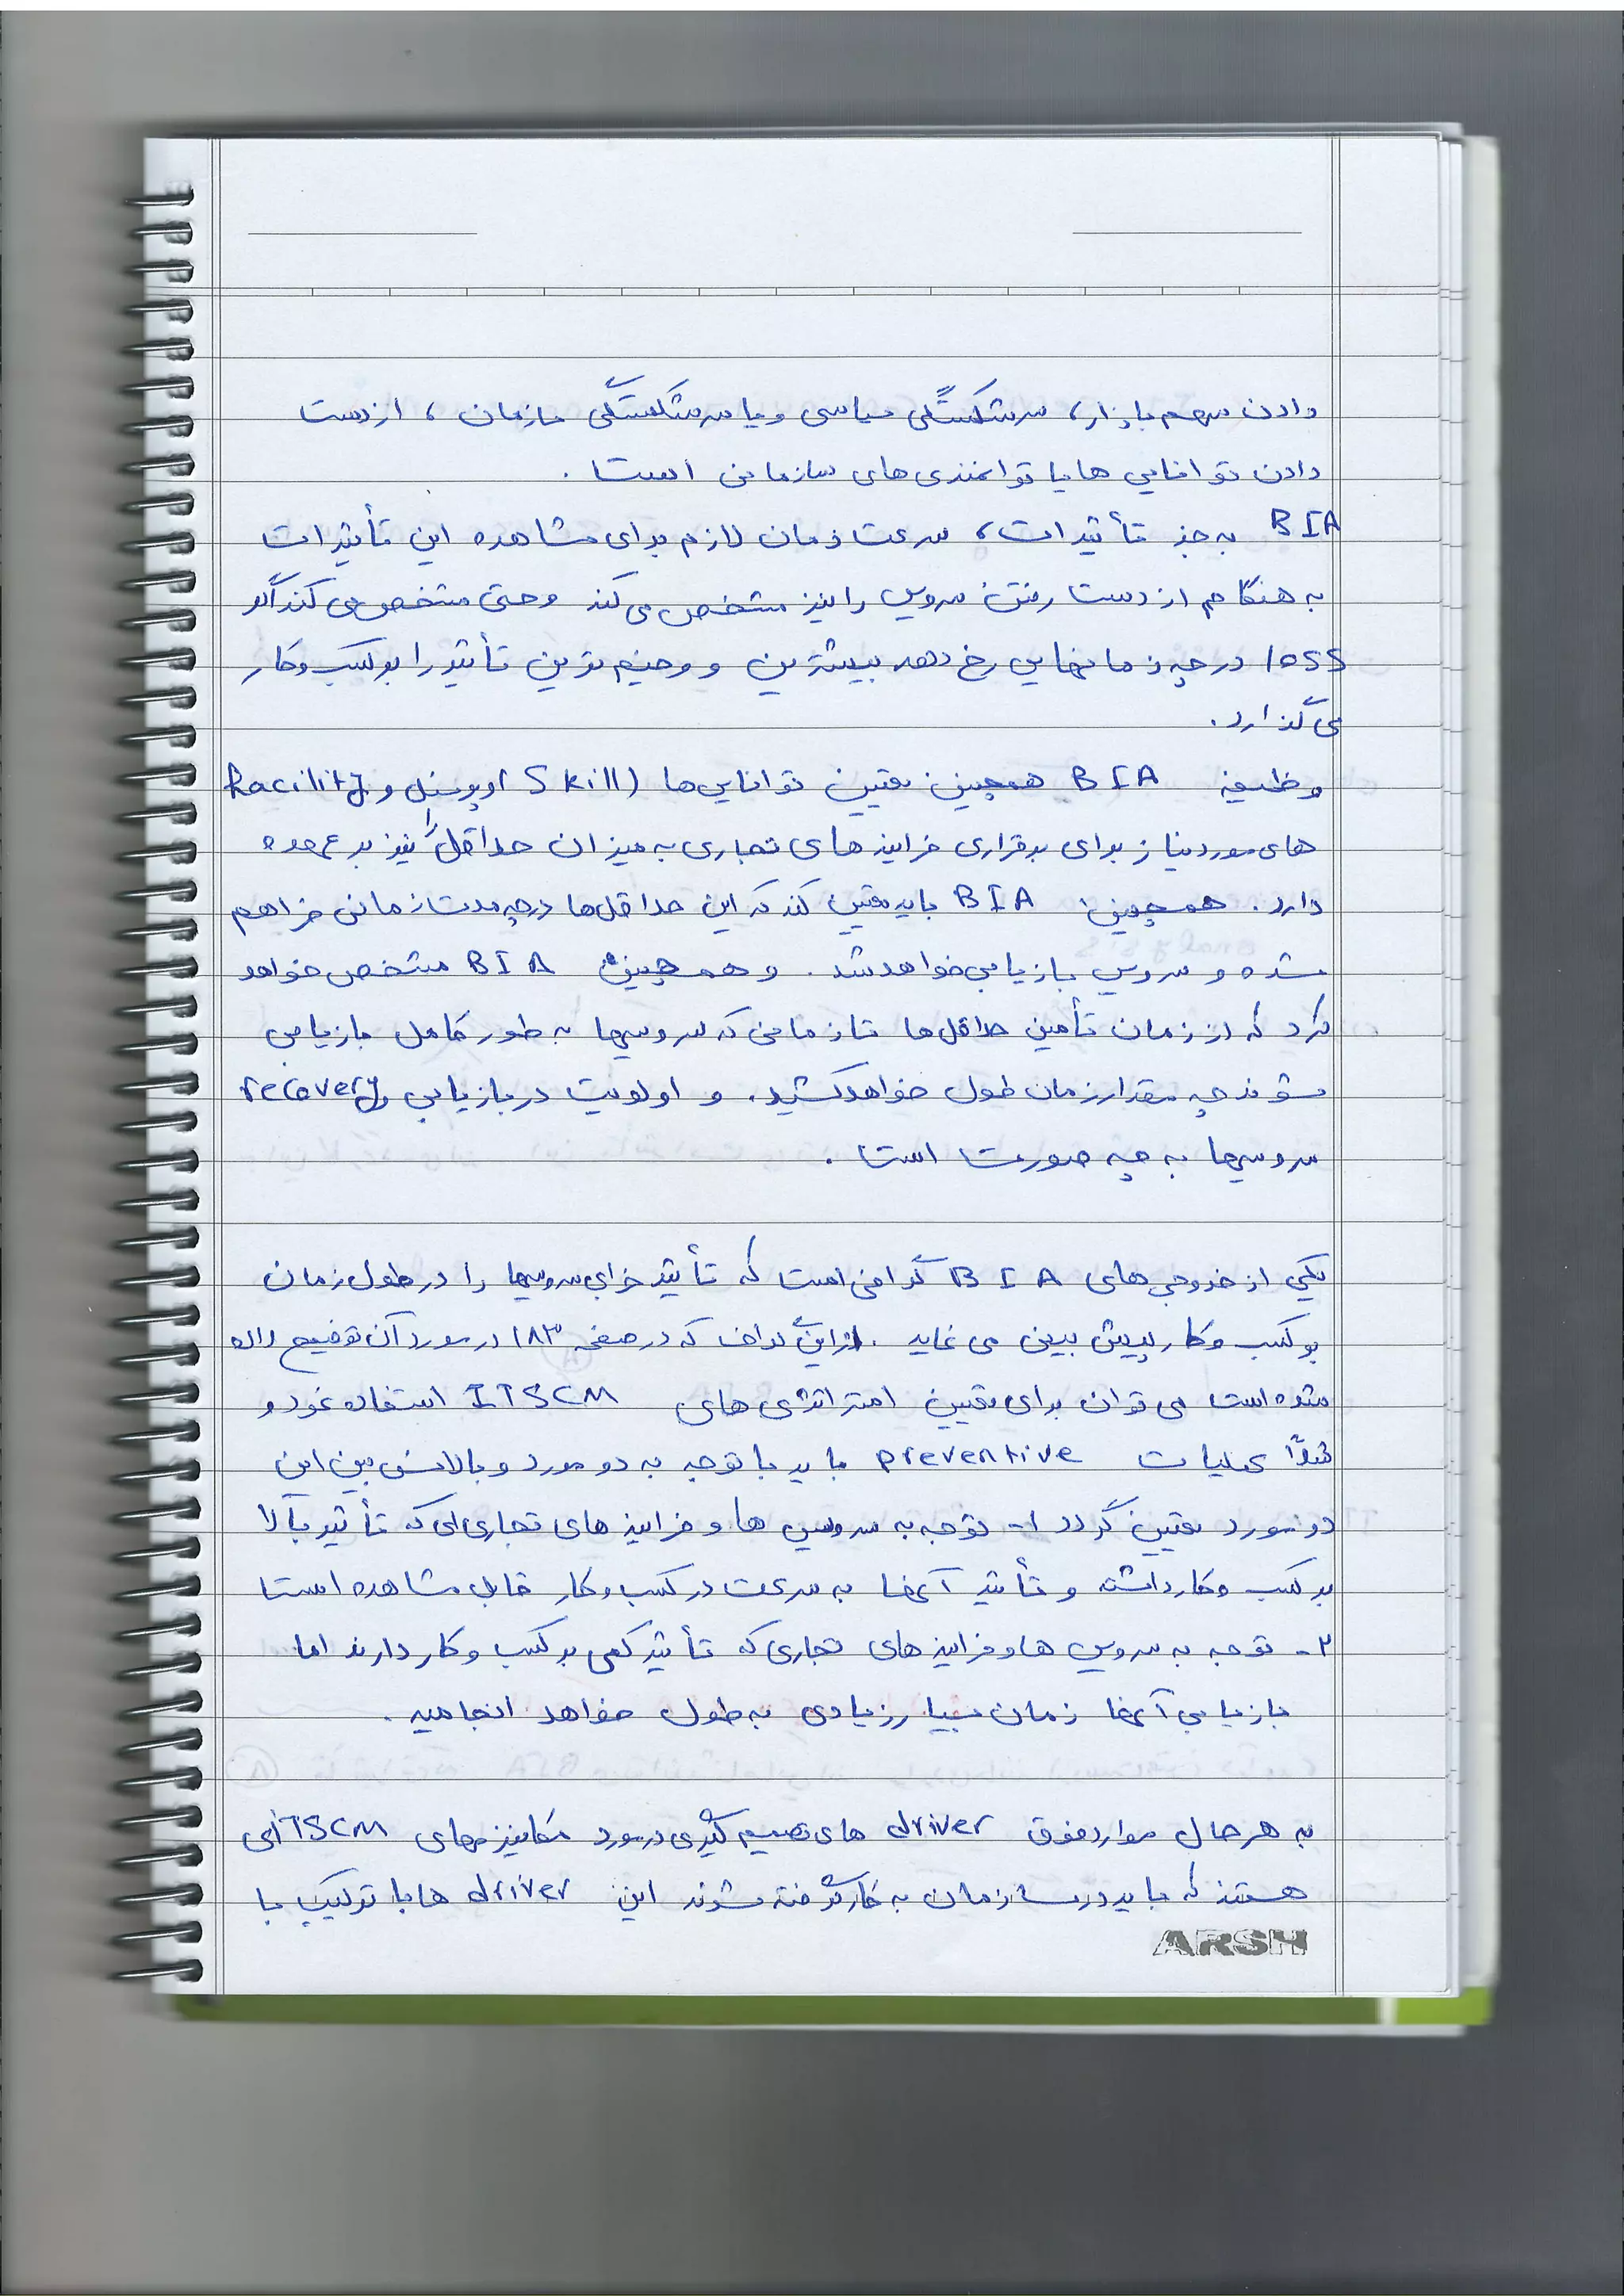 دادن سهم بازار، سرشکستگی سیاسی و یا سرشکستگی سازمان، از دست
دادن توانایی ها یا توانمندی های سازمانی است.
BIA به جز تأثیرات، سرعت زمان لازم برای مشاهده این تأثیرات
به هنگام از دست رفتن سرویس را نیز مشخص می کند و حتی مشخص می کند اگر
loss در چه زمانهایی رخ دهد بیشترین و وخیم ترین تأثیر را بر کسب و کار
می گذارد.
وظیفه BIA همچنین تعیین توانایی ها (Skill) و پرسنل و Facility
های مورد نیاز برای برقراری فرایند های تجاری به میزان حداقل را نیز بر عهده
دارد. همچنین BIA باید تعیین کند که این حداقل ها در چه مدت زمانی فراهم
شده و سرویس بازیابی خواهد شد. و همچنین BIA مشخص خواهد
کرد که از زمان تأمین حداقل ها تا زمانی که سرویسها به طور کامل بازیابی
شوند چه مقدار زمان طول خواهد کشید. و اولویت در بازیابی و recovery
سرویسها به چه صورت است.
یکی از خروجی های BIA گرافی است که تأثیر خرابی سرویسها را در طول زمان
بر کسب و کار پیش بینی می نماید. از این گراف که در صفحه ۱۸۳ در مورد آن توضیح داده
شده است می توان برای تعیین استراتژی های ITSCM استفاده نمود و
مثلاً عملیات preventive باید با توجه به دو مورد و بالانس بین این
دو مورد تعیین گردد ۱- توجه به سرویس ها و فرایند های تجاری ای که تأثیر بالا
بر کسب و کار داشته و تأثیر آنها به سرعت در کسب و کار قابل مشاهده است
۲- توجه به سرویس ها و فرایند های تجاری که تأثیر کمی بر کسب و کار دارند اما
بازیابی آنها زمان بسیار زیادی به طول خواهد انجامید.
به هر حال موارد فوق driver های تصمیم گیری در مورد مکانیزمهای ITSCM ای
هستند که باید در سازمان به کار گرفته شوند این driver ها با ترکیب با
ARSH